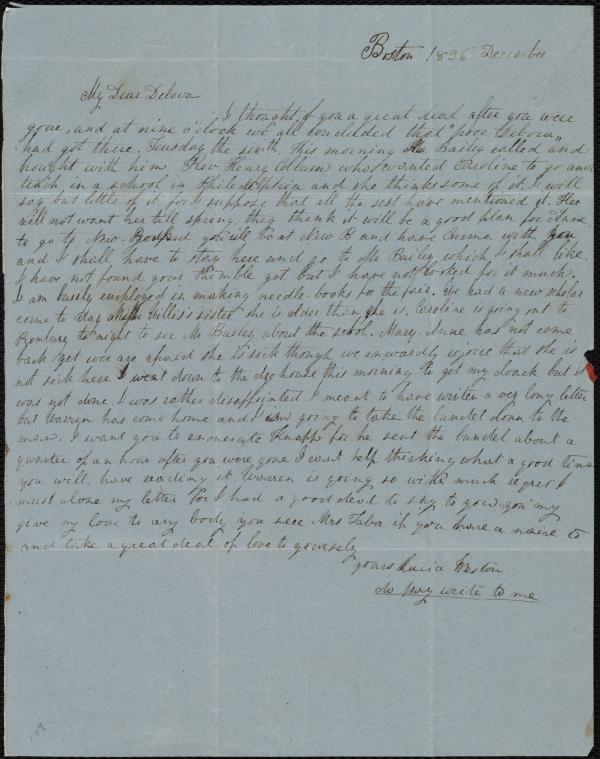 Boston 1836 December
My Dear Debora
I thought of you a great deal after you were
gone, and at nine o'clock we all concluded that "poor Debora"
had got there. Tuesday the sixth. This morning Mr Bailey called and
bought with him Rev Henry Colburn who wanted Caroline to go and
teach in a school in Philedelphia and she thinks some of it. I will
say but little of it for I suppose that all the rest have mentioned it. Hee
will not want her till spring. they think it will be a good plan for Anne
to go to New-Bedford you will be at New B and have Emma with you
and I shall have to stay here and go to Mr Bailey, which I shall like.
I have not found your thimble yet but I have not looked for it much.
I am busily employed in making needle-books for the fare. We had a new scholar
come to day Miss Willis's sister she is older then she is, Caroline is going out to
Roxbury to night to see Mr Bailey about the scool. Mary June has not come
back yet wee are afraid she is sick though we inwardly rejoce that she is
not sick here I went down to the dye house this morning to get my cloack but it
was not done I was rather dissapointed. I meant to have writen a very long letter
but Warren has come home and I am going to take the bundel doan to the
man. I want you to Knapp for he sent the bundel about a
qwarter of an hour after you were gone I cant help thinking what a good time
you will have reading it Warren is going so with much regret I
must close my letter for I had a good deal to say to you. you my
give my love to any body you see Mrs Tabor if you have a mine to
and take a great deal of love to yourself
yours Lucia Weston
do pray write to me